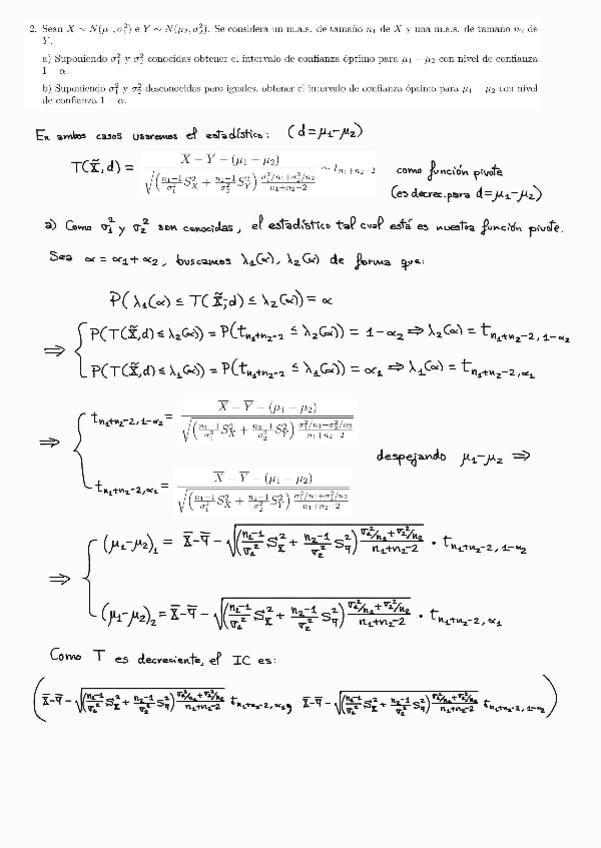 2. Sean X ∼ N(μ₁, σ₁²) e Y ∼ N(μ₂, σ₂²). Se considera un m.a.s. de tamaño n₁ de X y una m.a.s. de tamaño n₂ de
Y.
a) Suponiendo σ₁² y σ₂² conocidas obtener el intervalo de confianza óptimo para μ₁ − μ₂ con nivel de confianza
1 − α.
b) Suponiendo σ₁² y σ₂² desconocidas pero iguales, obtener el intervalo de confianza óptimo para μ₁ − μ₂ con nivel
de confianza 1 − α.
En ambos casos usaremos el estadístico: (d=μ₁-μ₂)
T(X̃,d) = (X − Y − (μ₁ − μ₂)) / √(((n₁−1)/σ₁² S²_X + (n₂−1)/σ₂² S²_Y) (σ₁²/n₁+σ₂²/n₂)/(n₁+n₂−2)) ∼ t_{n₁+n₂−2} como función pivote
(es decrec. para d=μ₁-μ₂)
a) Como σ₁² y σ₂² son conocidas, el estadístico tal cual está es nuestra función pivote.
Sea α = α₁+α₂, buscamos λ₁(α), λ₂(α) de forma que:
P(λ₁(α) ≤ T(X̃;d) ≤ λ₂(α)) = α
⇒ { P(T(X̃,d) ≤ λ₂(α)) = P(t_{n₁+n₂-2} ≤ λ₂(α)) = 1-α₂ ⇒ λ₂(α) = t_{n₁+n₂-2, 1-α₂}
P(T(X̃,d) ≤ λ₁(α)) = P(t_{n₁+n₂-2} ≤ λ₁(α)) = α₁ ⇒ λ₁(α) = t_{n₁+n₂-2, α₁}
⇒ { t_{n₁+n₂-2, 1-α₂} = (X̄ − Ȳ − (μ₁ − μ₂)) / √(((n₁−1)/σ₁² S²_X + (n₂−1)/σ₂² S²_Y) (σ₁²/n₁+σ₂²/n₂)/(n₁+n₂−2))
despejando μ₁-μ₂ ⇒
t_{n₁+n₂-2, α₁} = (X̄ − Ȳ − (μ₁ − μ₂)) / √(((n₁−1)/σ₁² S²_X + (n₂−1)/σ₂² S²_Y) (σ₁²/n₁+σ₂²/n₂)/(n₁+n₂−2))
⇒ { (μ₁-μ₂)₁ = X̄-Ȳ - √(((n₁-1)/σ₁² S²_X + (n₂-1)/σ₂² S²_Y) (σ₁²/n₁+σ₂²/n₂)/(n₁+n₂-2)) · t_{n₁+n₂-2, 1-α₂}
(μ₁-μ₂)₂ = X̄-Ȳ - √(((n₁-1)/σ₁² S²_X + (n₂-1)/σ₂² S²_Y) (σ₁²/n₁+σ₂²/n₂)/(n₁+n₂-2)) · t_{n₁+n₂-2, α₁}
Como T es decreciente, el IC es:
(X̄-Ȳ - √(((n₁-1)/σ₁² S²_X + (n₂-1)/σ₂² S²_Y) (σ₁²/n₁+σ₂²/n₂)/(n₁+n₂-2)) t_{n₁+n₂-2, α₁}, X̄-Ȳ - √(((n₁-1)/σ₁² S²_X + (n₂-1)/σ₂² S²_Y) (σ₁²/n₁+σ₂²/n₂)/(n₁+n₂-2)) t_{n₁+n₂-2, 1-α₂})